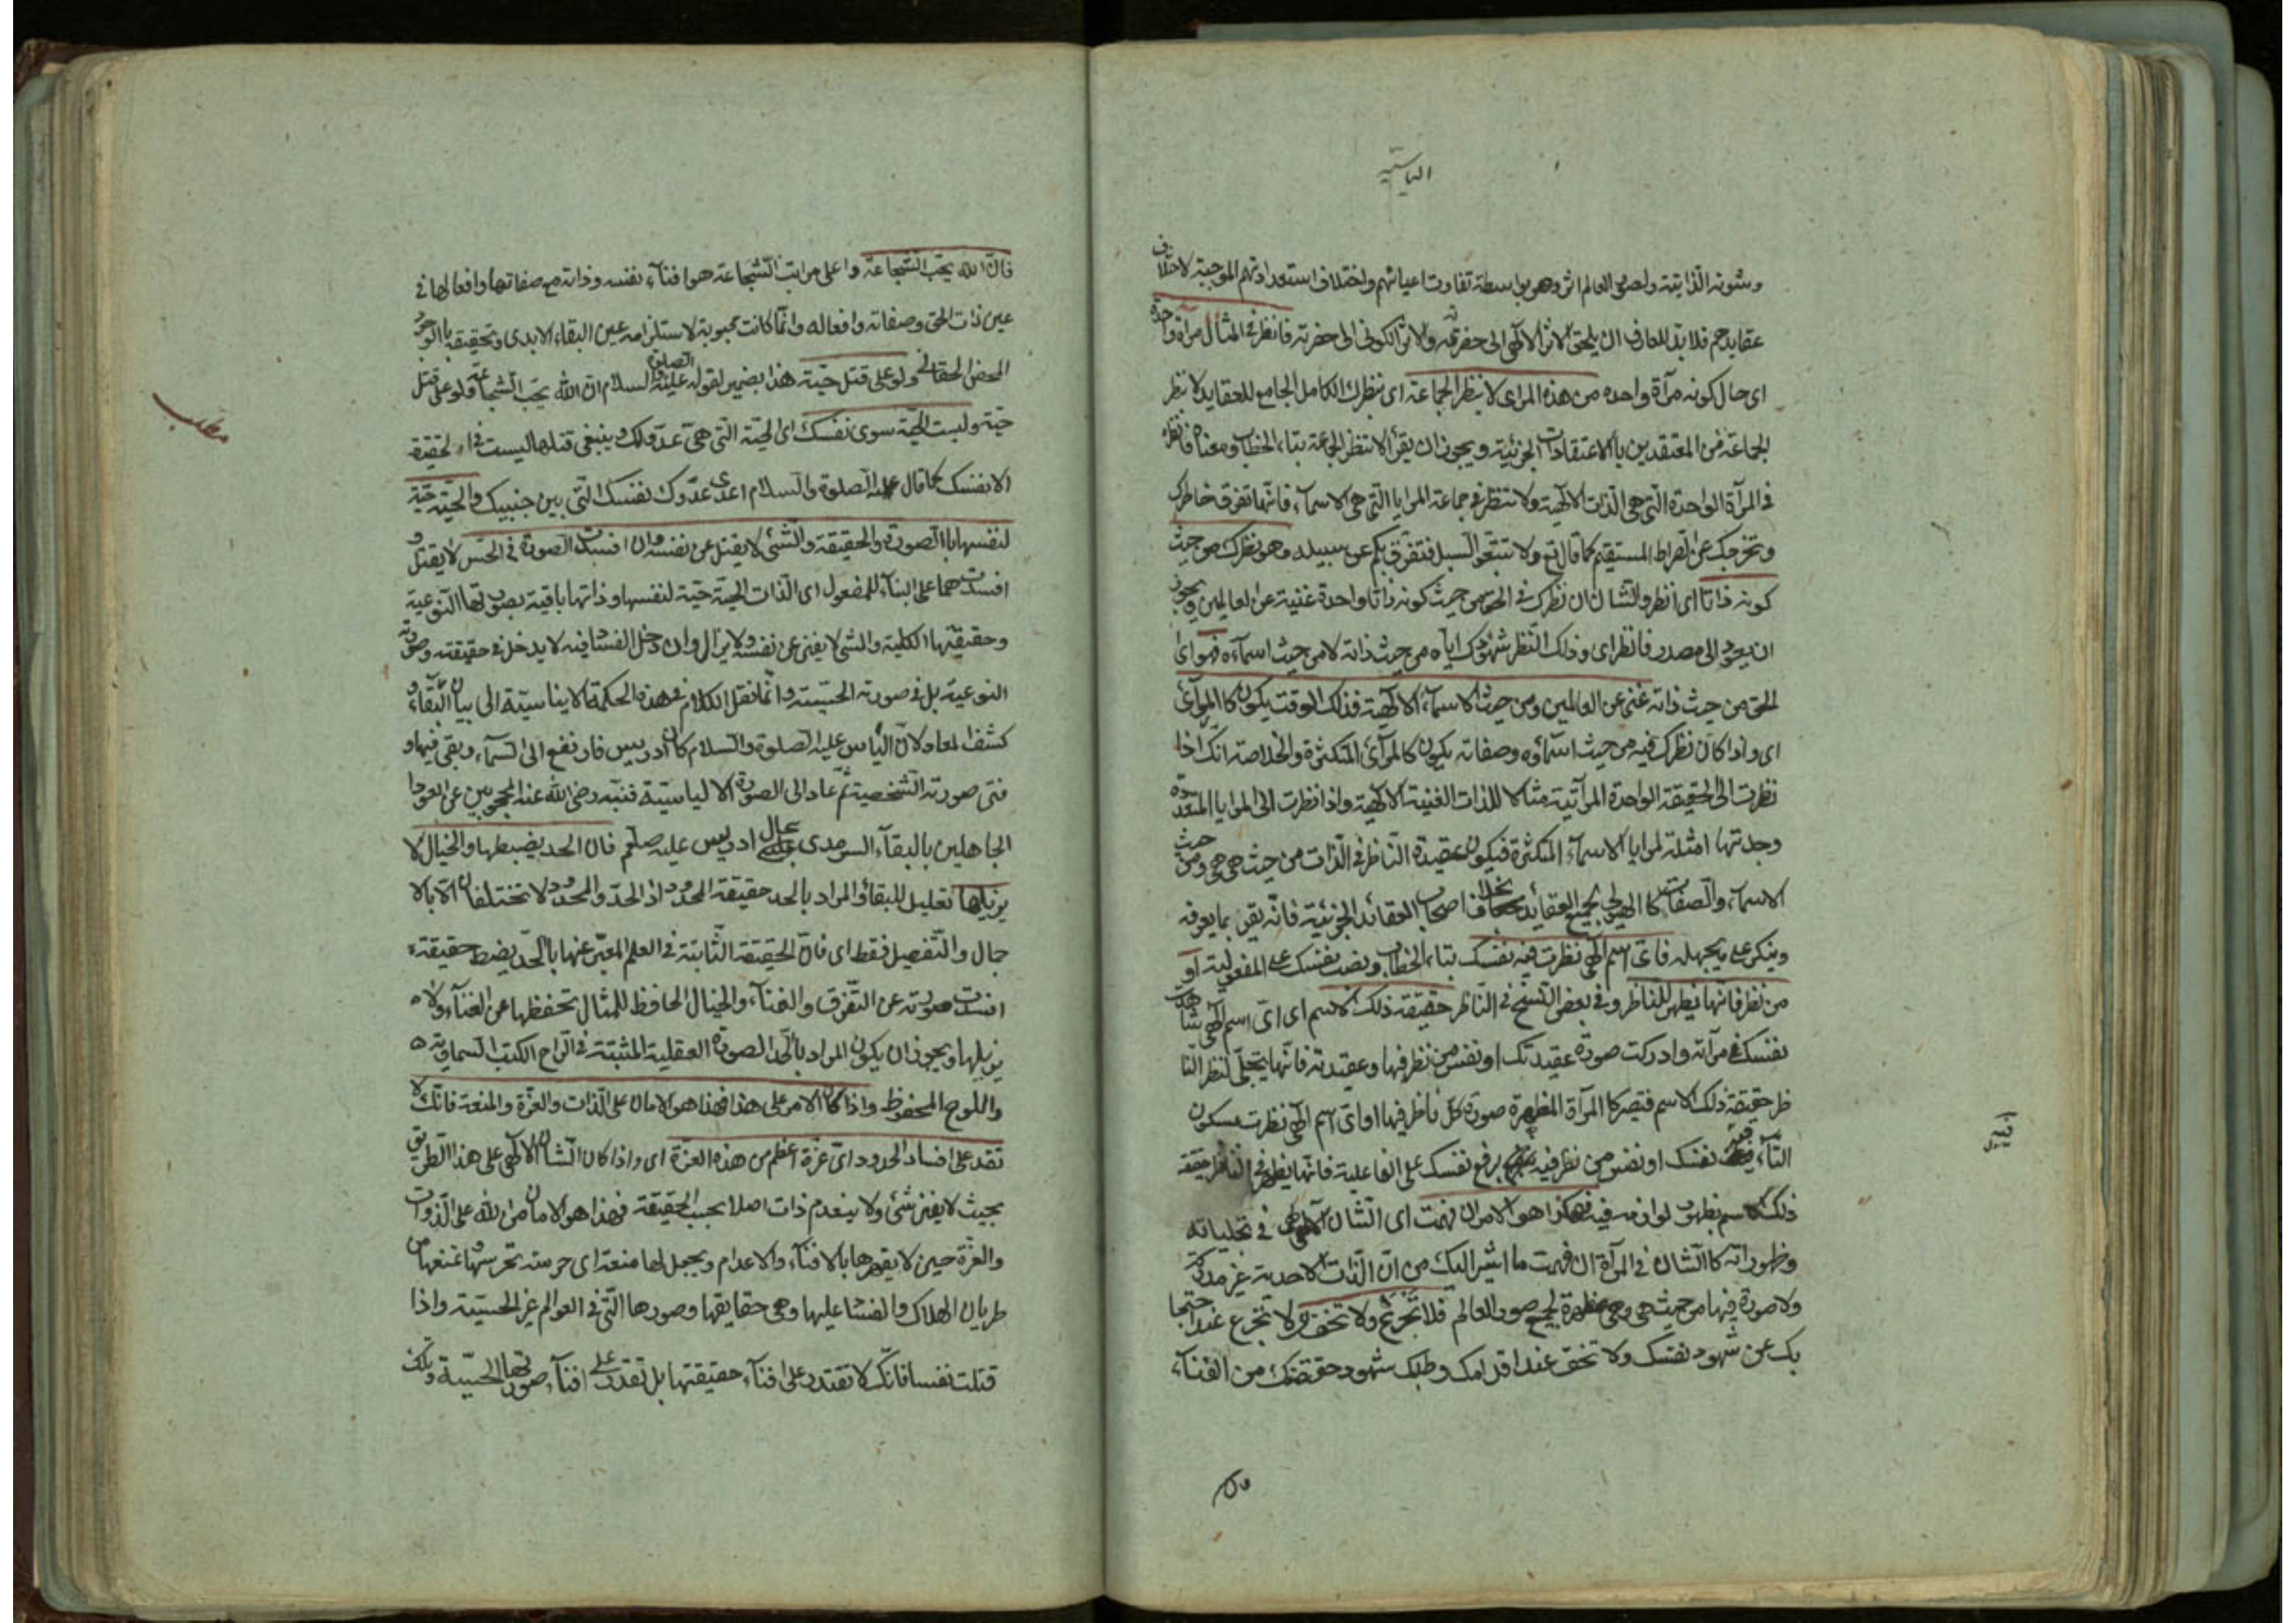 الياسيّة
وشئونه الذاتية ولصور العالم اثر وهو بواسطة تفاوت اعيانهم واختلاف استعداداتهم الموجبة لاختلاف
عقايدهم فلا بد للعارف ان يلحق الاثر الالهى الى حضرته والاثر الكونى الى حضرته فانظر فى المثال مرآة واحدة
اى حال كونه مرآة واحده من هذه المراى لا ينظر الجماعة اى بنظرك الكامل الجامع للعقايد لا نظر
الجماعة من المعتقدين بالاعتقادات الجزئية ويجوز ان يقرأ لا تنظر الجماعة بتاء الخطاب ومعناه فانظر
فى المرآة الواحدة التى هى الذات الالهية ولا تنظر فى جماعة المرايا التى هى الاسماء فانها تفرق خاطرك
وتخرجك عن الصراط المستقيم كما قال تع ولا تتبعوا السبل فتفرق بكم عن سبيله وهو نظرك من حيث
كونه ذاتا اى انظر والشان ان نظرك فى الحق من حيث كونه ذاتا واحدة غنية عن العالمين ويجوز
ان يعود الى مصدر فانظر اى وذلك النظر شهودك اياه من حيث ذاته لا من حيث اسمآءه فهو اى
الحق من حيث ذاته غنى عن العالمين ومن حيث الاسماء الالهية فذلك الوقت يكون كالمرآئ
اى واذا كان نظرك فيه من حيث اسمآؤه وصفاته يكون كالمرآئ المتكثرة والخلاصة انك اذا
نظرت الى الحقيقة الواحدة المرآتية مثالا للذات الغنية الالهية واذا نظرت الى المرايا المتعددة
وجدتها امثلة لمرايا الاسماء المتكثرة فيكون عقيدة الناظر فى الذات من حيث هى هى ومن حيث
الاسماء والصفات كالهيولى لجميع العقائد بخلاف اصحاب العقائد الجزئية فانه يقر بما يعرفه
وينكر على ما يجهله فاى اسم الهى نظرت فيه نفسك بتاء الخطاب ونصب نفسك على المفعولية او
من نظر فانها يظهر للناظر وفى بعض النسخ فى الناظر حقيقة ذلك الاسم اى اى اسم الهى شاهدت
نفسك فى مرآته وادركت صورة عقيدتك او نفس من نظر فيها وعقيدته فانها يتجلى لنظر النا
ظر حقيقة ذلك الاسم فتصير كالمرآة المظهرة صورة كل ناظر فيها او اى اسم الهى نظرت بسكون
التآء فيه نفسك او نفس من نظر فيه برفع نفسك على الفاعلية فانها يظهر فى الناظر حقيقة
ذلك الاسم بظهور لوازمه فيه فهكذا هو الامر ان فهمت اى الشان الالهى فى تجلياته
وظهوراته كالشان فى المرآة ان فهمت ما اشير اليك من ان الذات الاحدية غير مدركة
ولا صورة فيها من حيث هى وهى مظهرة لجميع صور العالم فلا تجزع ولا تخف اى لا تجزع عند احتجا
بك عن شهود نفسك ولا تخف عند اقدامك وطلبك شهود حقيقتك من الفنآء
فان الله يحب الشجاعة واعلى مراتب الشجاعة هو افنآء نفسه وذاته مع صفاتها وافعالها فى
عين ذات الحق وصفاته وافعاله وانما كانت محبوبة لاستلزامه عين البقاء الابدى وتحقيقه بالوجود
المحض الحقانى ولو على قتل حيّة هذا تضمير لقوله عليه الصلوة والسلام ان الله يحب الشجاعة ولو على قتل
حية وليست الحيّة سوى نفسك اى الحية التى هى عدو لك وينبغى قتلها ليست فى الحقيقة
الا نفسك كما قال عليه الصلوة والسلام اعدى عدوك نفسك التى بين جنبيك والحيّة حيّة
لنفسها بالصورة والحقيقة والشئ لا يقتل عن نفسه وان افسدت الصورة فى الحس لا يقتل و
افسدت هما على البناء للمفعول اى الذات الحية حيّة لنفسها وذاتها باقية بصورتها النوعية
وحقيقتها الكلية والشئ لا يفنى عن نفسه ولا يزال وان دخل الفساد فيه لا يدخل فى حقيقته وصورته
النوعية بل فى صورته الحسّية وانما نقل الكلام فى هذه الحكمة الايناسيّة الى بيان البقاء و
كشف المعاد لان الياس عليه الصلوة والسلام كان ادريس فارتفع الى السمآء وبقى فيها و
فنى صورته الشخصية ثم عاد الى الصورة الالياسيّة فنبه رضى الله عنه المحجوبين عن العود ا
الجاهلين بالبقآء السرمدى بحال ادريس عليه صلم فان الحد يضبطها والخيال لا
يزيلها تعليل للبقاء والمراد بالحد حقيقة المحدود اذ الحدّ والمحدود لا تختلفان الّا بالا
جمال والتفصيل فقط اى فان الحقيقة الثابتة فى العلم المعبّر عنها بالحدّ يضبط حقيقة
افسدت صورته عن التفرق والفنآء والخيال الحافظ للمثال تحفظها عن الفنآء ولا
يزيلها ويجوز ان يكون المراد بالحد الصورة العقلية المثبتة فى الواح الكتب السماوية
واللوح المحفوظ واذا كان الامر على هذا فهذا هو الامان على الذات والعزة والمنعة فانك لا
تقدر على افساد الحدود اى عزة اعظم من هذه العزة اى واذا كان الشان الالهى على هذا الطريق
بحيث لا يفنى شئ ولا ينعدم ذات اصلا بحسب الحقيقة فهذا هو الامان من الله على الذوات
والعزة حين لا يقهرها بالافنآء والاعدام ويجعل لها منعة اى حرسة تحرسها وتمنعها من
طريان الهلاك والفساد عليها وهى حقايقها وصورها التى فى العوالم غير الحسيّة واذا
قتلت نفسا فانك لا تقتدر على افنآء حقيقتها بل تقدر على افنآء صورتها الحسيّة وتلك
مطلب